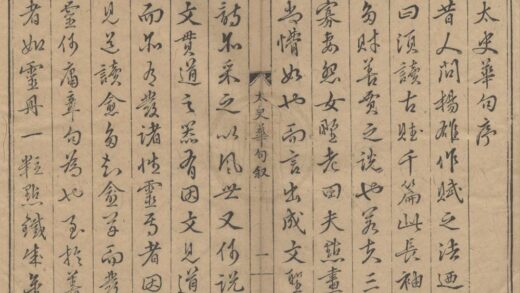 太史華句序
昔人問楊雄作賦之法迺
曰須讀古賦千篇此長袖
多財善賈之說也若夫三
寡妻怨女野老田夫點畫
尚懵如也而言出成文聖
太史華句叙
一
詩亦采之以風世又何說
文貫道之器有因文見道
而亦有發諸性靈焉者因
見道讀愈多知愈而發
靈何庸章句為也至於善
者如靈丹一粒點鐵成